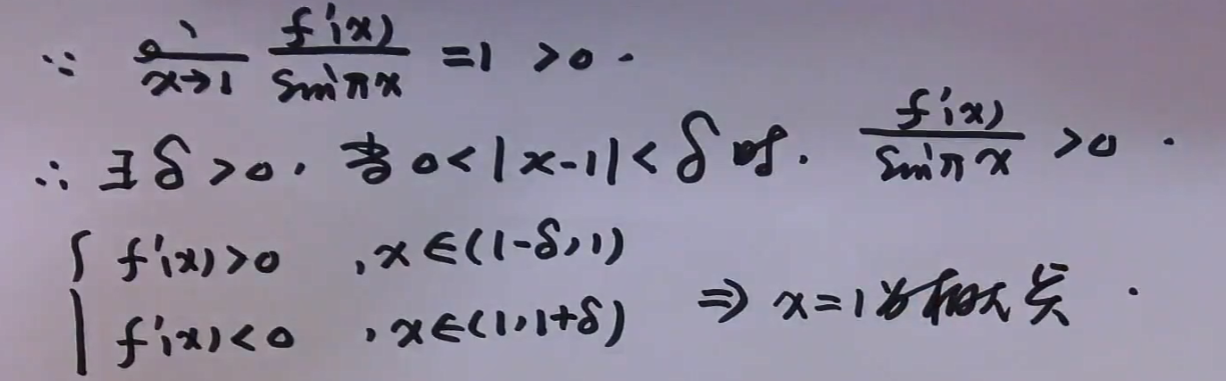 ∵ lim x→1 f'(x)/sinπx = 1 > 0.
∴ ∃ δ > 0, 当 0 < |x-1| < δ 时. f'(x)/sinπx > 0.
{ f'(x) > 0 , x ∈ (1-δ, 1)
f'(x) < 0 , x ∈ (1, 1+δ) ⇒ x = 1 为极大点.